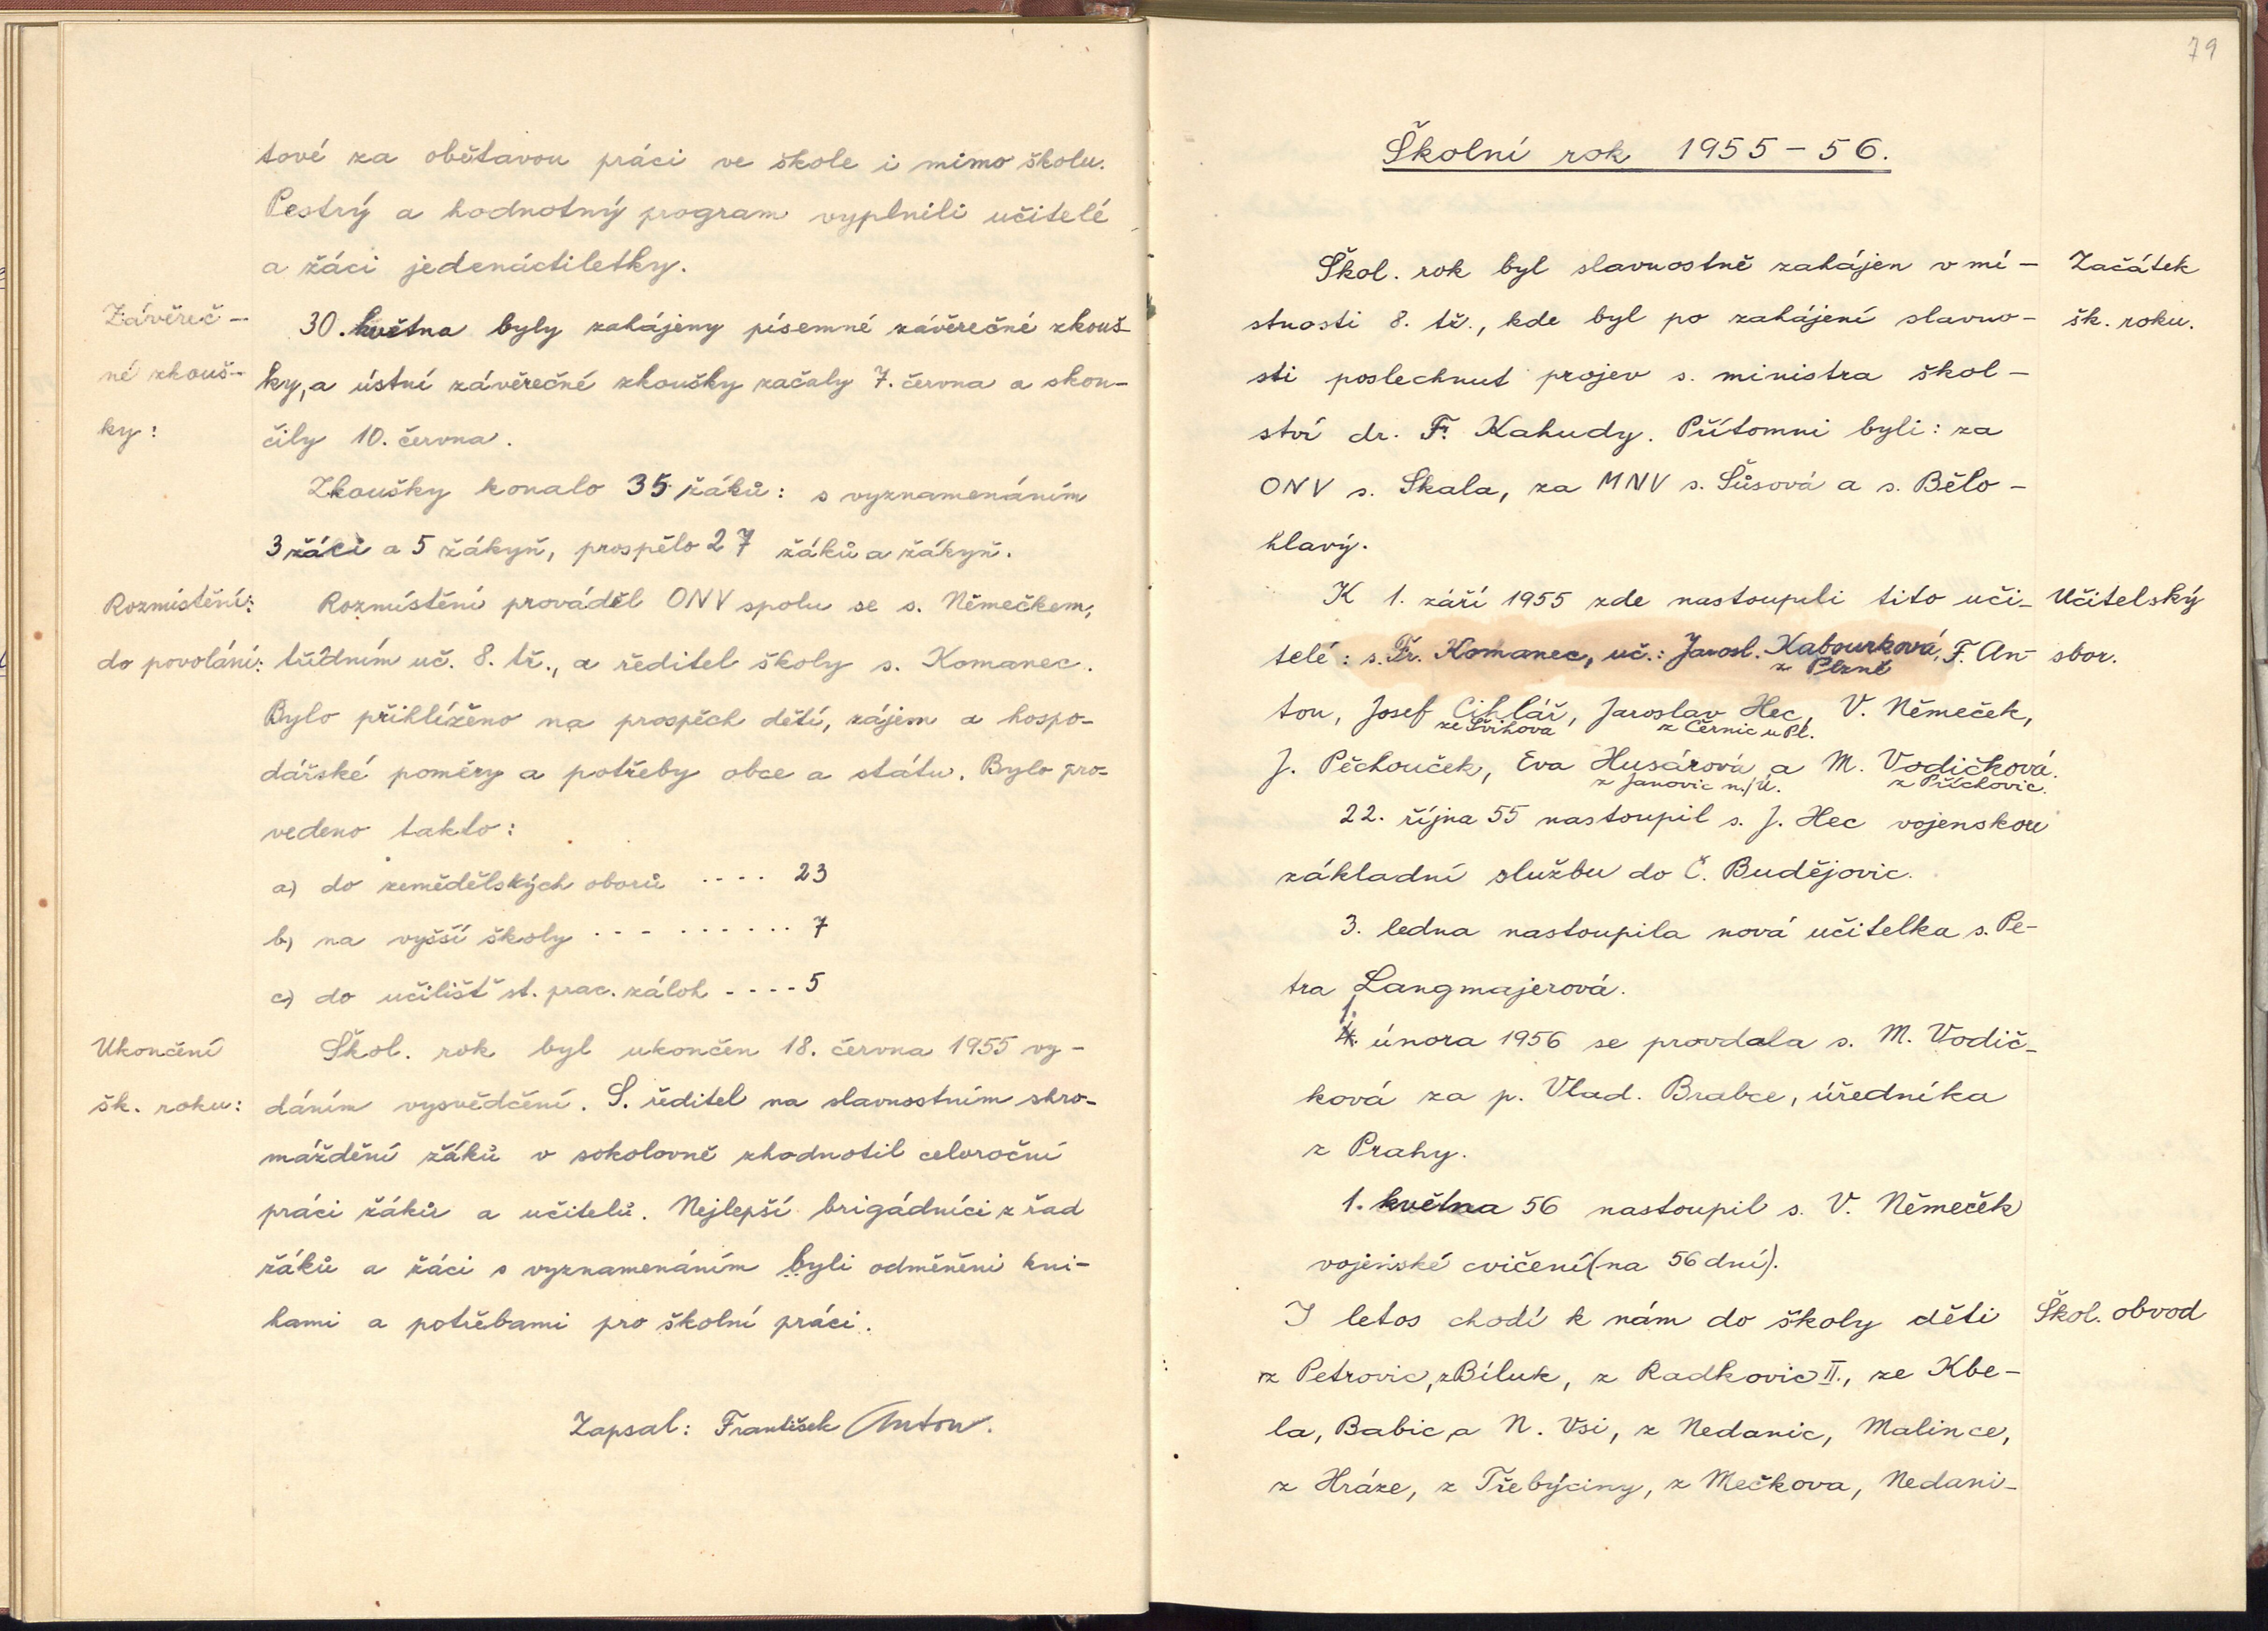 tové za obětavou práci ve škole i mimo školu.
Pestrý a hodnotný program vyplnili učitelé
a žáci jedenáctiletky.
Závěreč-
né zkouš-
ky:
30. května byly zahájeny písemné závěrečné zkouš-
ky, a ústní závěrečné zkoušky začaly 7. června a skon-
čily 10. června.
Zkoušky konalo 35 žáků: s vyznamenáním
3 žáci a 5 žákyň, prospělo 27 žáků a žákyň.
Rozmístění:
do povolání:
Rozmístění prováděl ONV spolu se s. Němečkem,
třídním uč. 8. tř., a ředitel školy s. Komanec.
Bylo přihlíženo na prospěch dětí, zájem a hospo-
dářské poměry a potřeby obce a státu. Bylo pro-
vedeno takto:
a) do zemědělských oborů .... 23
b) na vyšší školy .......... 7
c) do učilišť st. prac. záloh .... 5
Ukončení
šk. roku:
Škol. rok byl ukončen 18. června 1955 vy-
dáním vysvědčení. S. ředitel na slavnostním shro-
máždění žáků v sokolovně zhodnotil celoroční
práci žáků a učitelů. Nejlepší brigádníci z řad
žáků a žáci s vyznamenáním byli odměněni kni-
hami a potřebami pro školní práci.
Zapsal: František Anton.
79
Školní rok 1955-56.
Škol. rok byl slavnostně zahájen v mí-
stnosti 8. tř., kde byl po zahájení slavno-
sti poslechnut projev s. ministra škol-
ství dr. Fr. Kahudy. Přítomni byli: za
ONV s. Skala, za MNV s. Šůsová a s. Bělo-
hlavý.
Začátek
šk. roku.
K 1. září 1955 zde nastoupili tito uči-
telé: s. Fr. Komanec, uč.: Jarosl. Kabourková, F. An-
z Plzně
ton, Josef Cihlář, Jaroslav Hec, V. Němeček,
ze Švihova z Černic u Pl.
J. Pěchouček, Eva Husárová a M. Vodičková.
z Janovic n./Ú. z Příchovic.
Učitelský
sbor.
22. října 55 nastoupil s. J. Hec vojenskou
základní službu do Č. Budějovic.
3. ledna nastoupila nová učitelka s. Pe-
tra Langmajerová.
1.
4. února 1956 se provdala s. M. Vodič-
ková za p. Vlad. Brabce, úředníka
z Prahy.
1. května 56 nastoupil s. V. Němeček
vojenské cvičení (na 56 dní).
I letos chodí k nám do školy děti
z Petrovic, z Bíluk, z Radkovic II., ze Kbe-
la, Babic a N. Vsi, z Nedanic, Malince,
z Hráze, z Třebýciny, z Mečkova, Nedani-
Škol. obvod